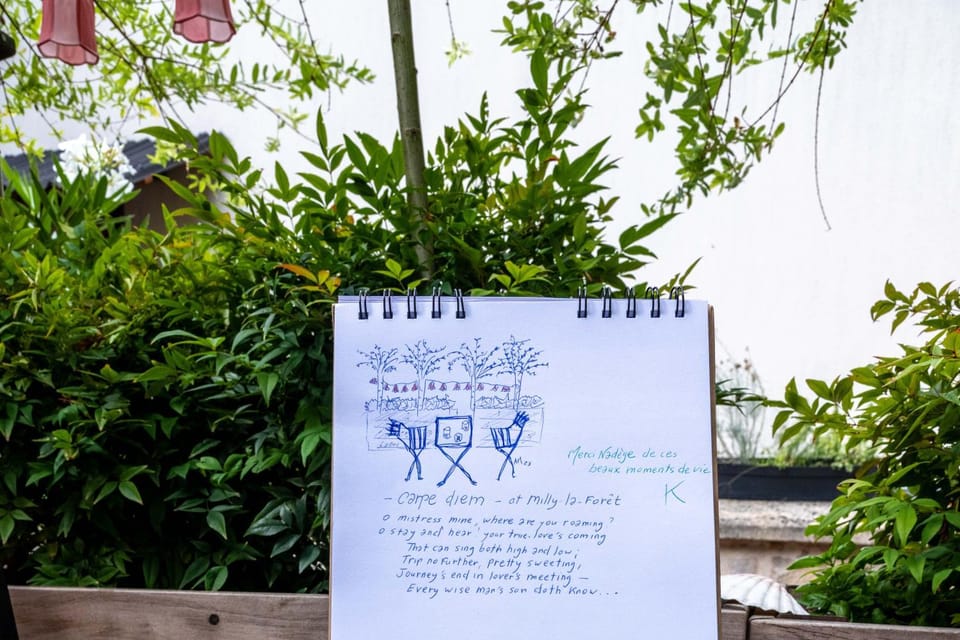 Merci Nadège de ces
beaux moments de vie
K
- Carpe diem - at Milly-la-Forêt
O mistress mine, where are you roaming?
O stay and hear, your true love's coming
That can sing both high and low;
Trip no further, pretty sweeting,
Journey's end in lover's meeting —
Every wise man's son doth know...